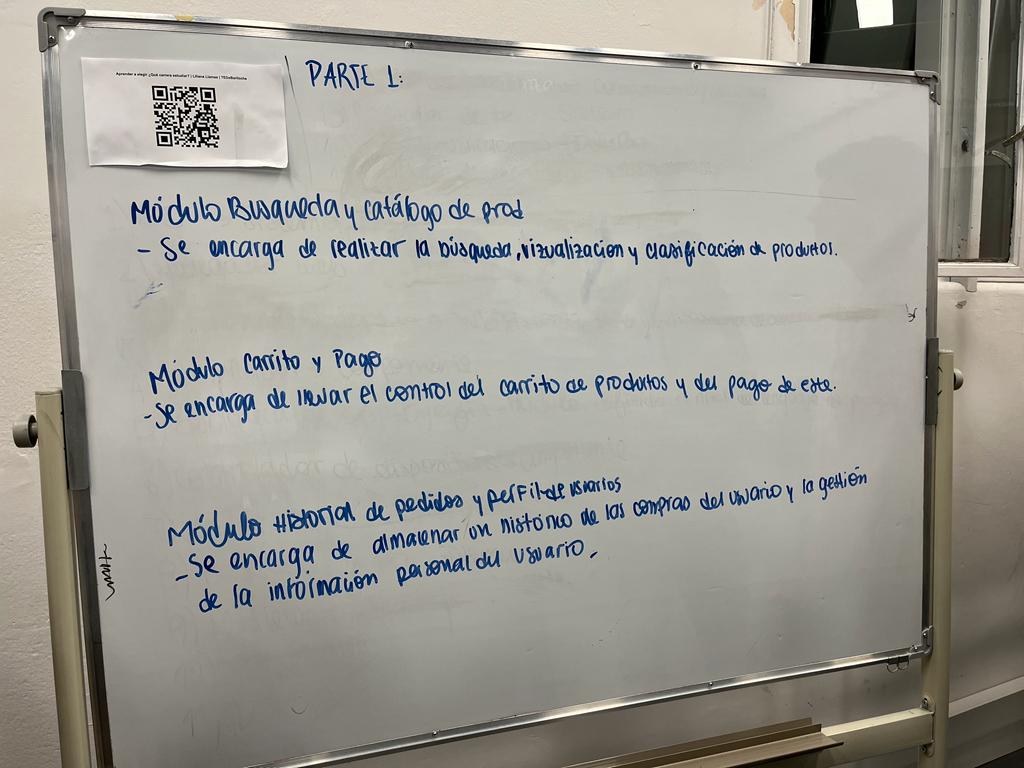 Aprender a elegir ¿Qué carrera estudiar? | Liliana Llamas | TEDxBariloche
PARTE 1:
Módulo Busqueda y catálogo de prod
- Se encarga de realizar la búsqueda, vizualización y clasificación de productos.
Módulo Carrito y Pago
- Se encarga de llevar el control del carrito de productos y del pago de este.
Módulo Historial de pedidos y perfil de usuarios
- Se encarga de almacenar un histórico de las compras del usuario y la gestión
de la información personal del usuario.